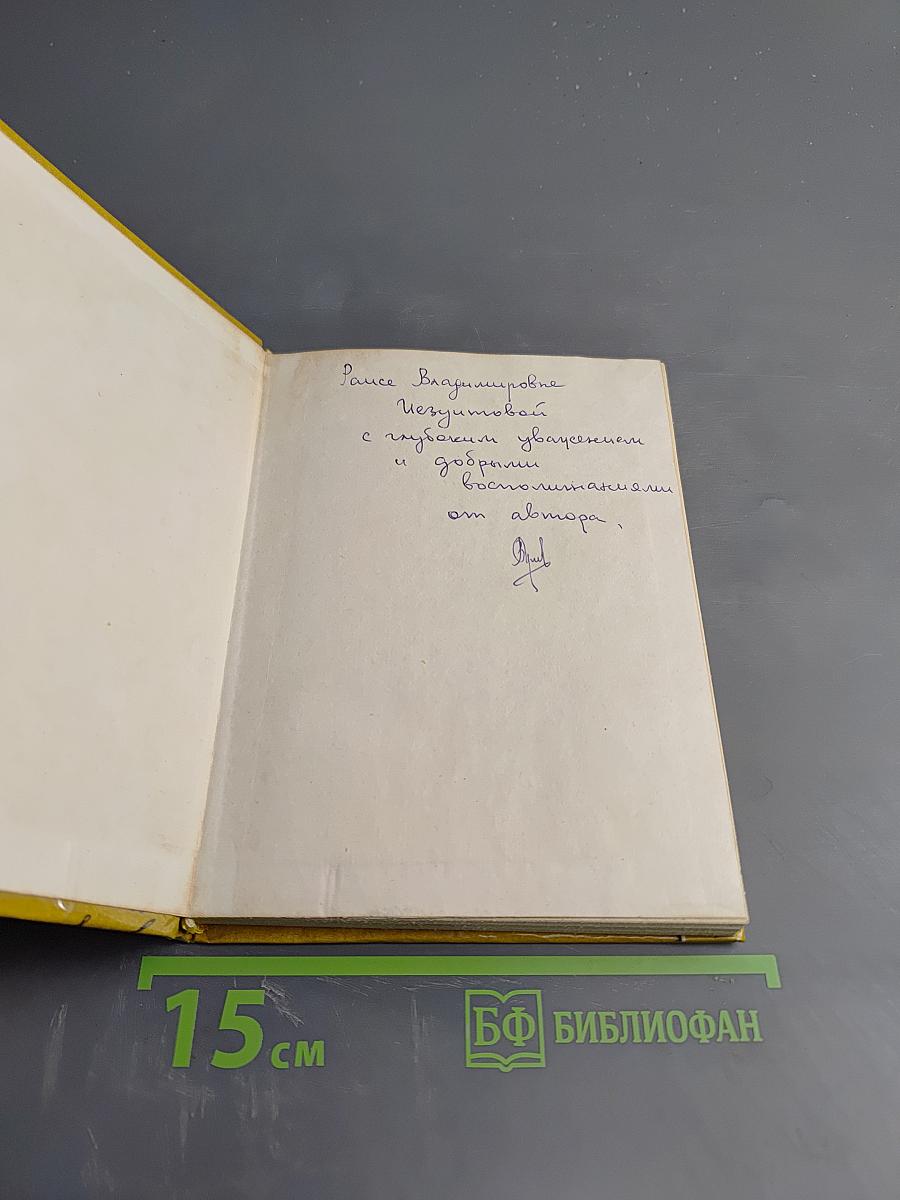 Раисе Владимировне
Иезуитовой
с глубоким уважением
и добрыми
воспоминаниями
от автора,
15 см
БФ БИБЛИОФАН